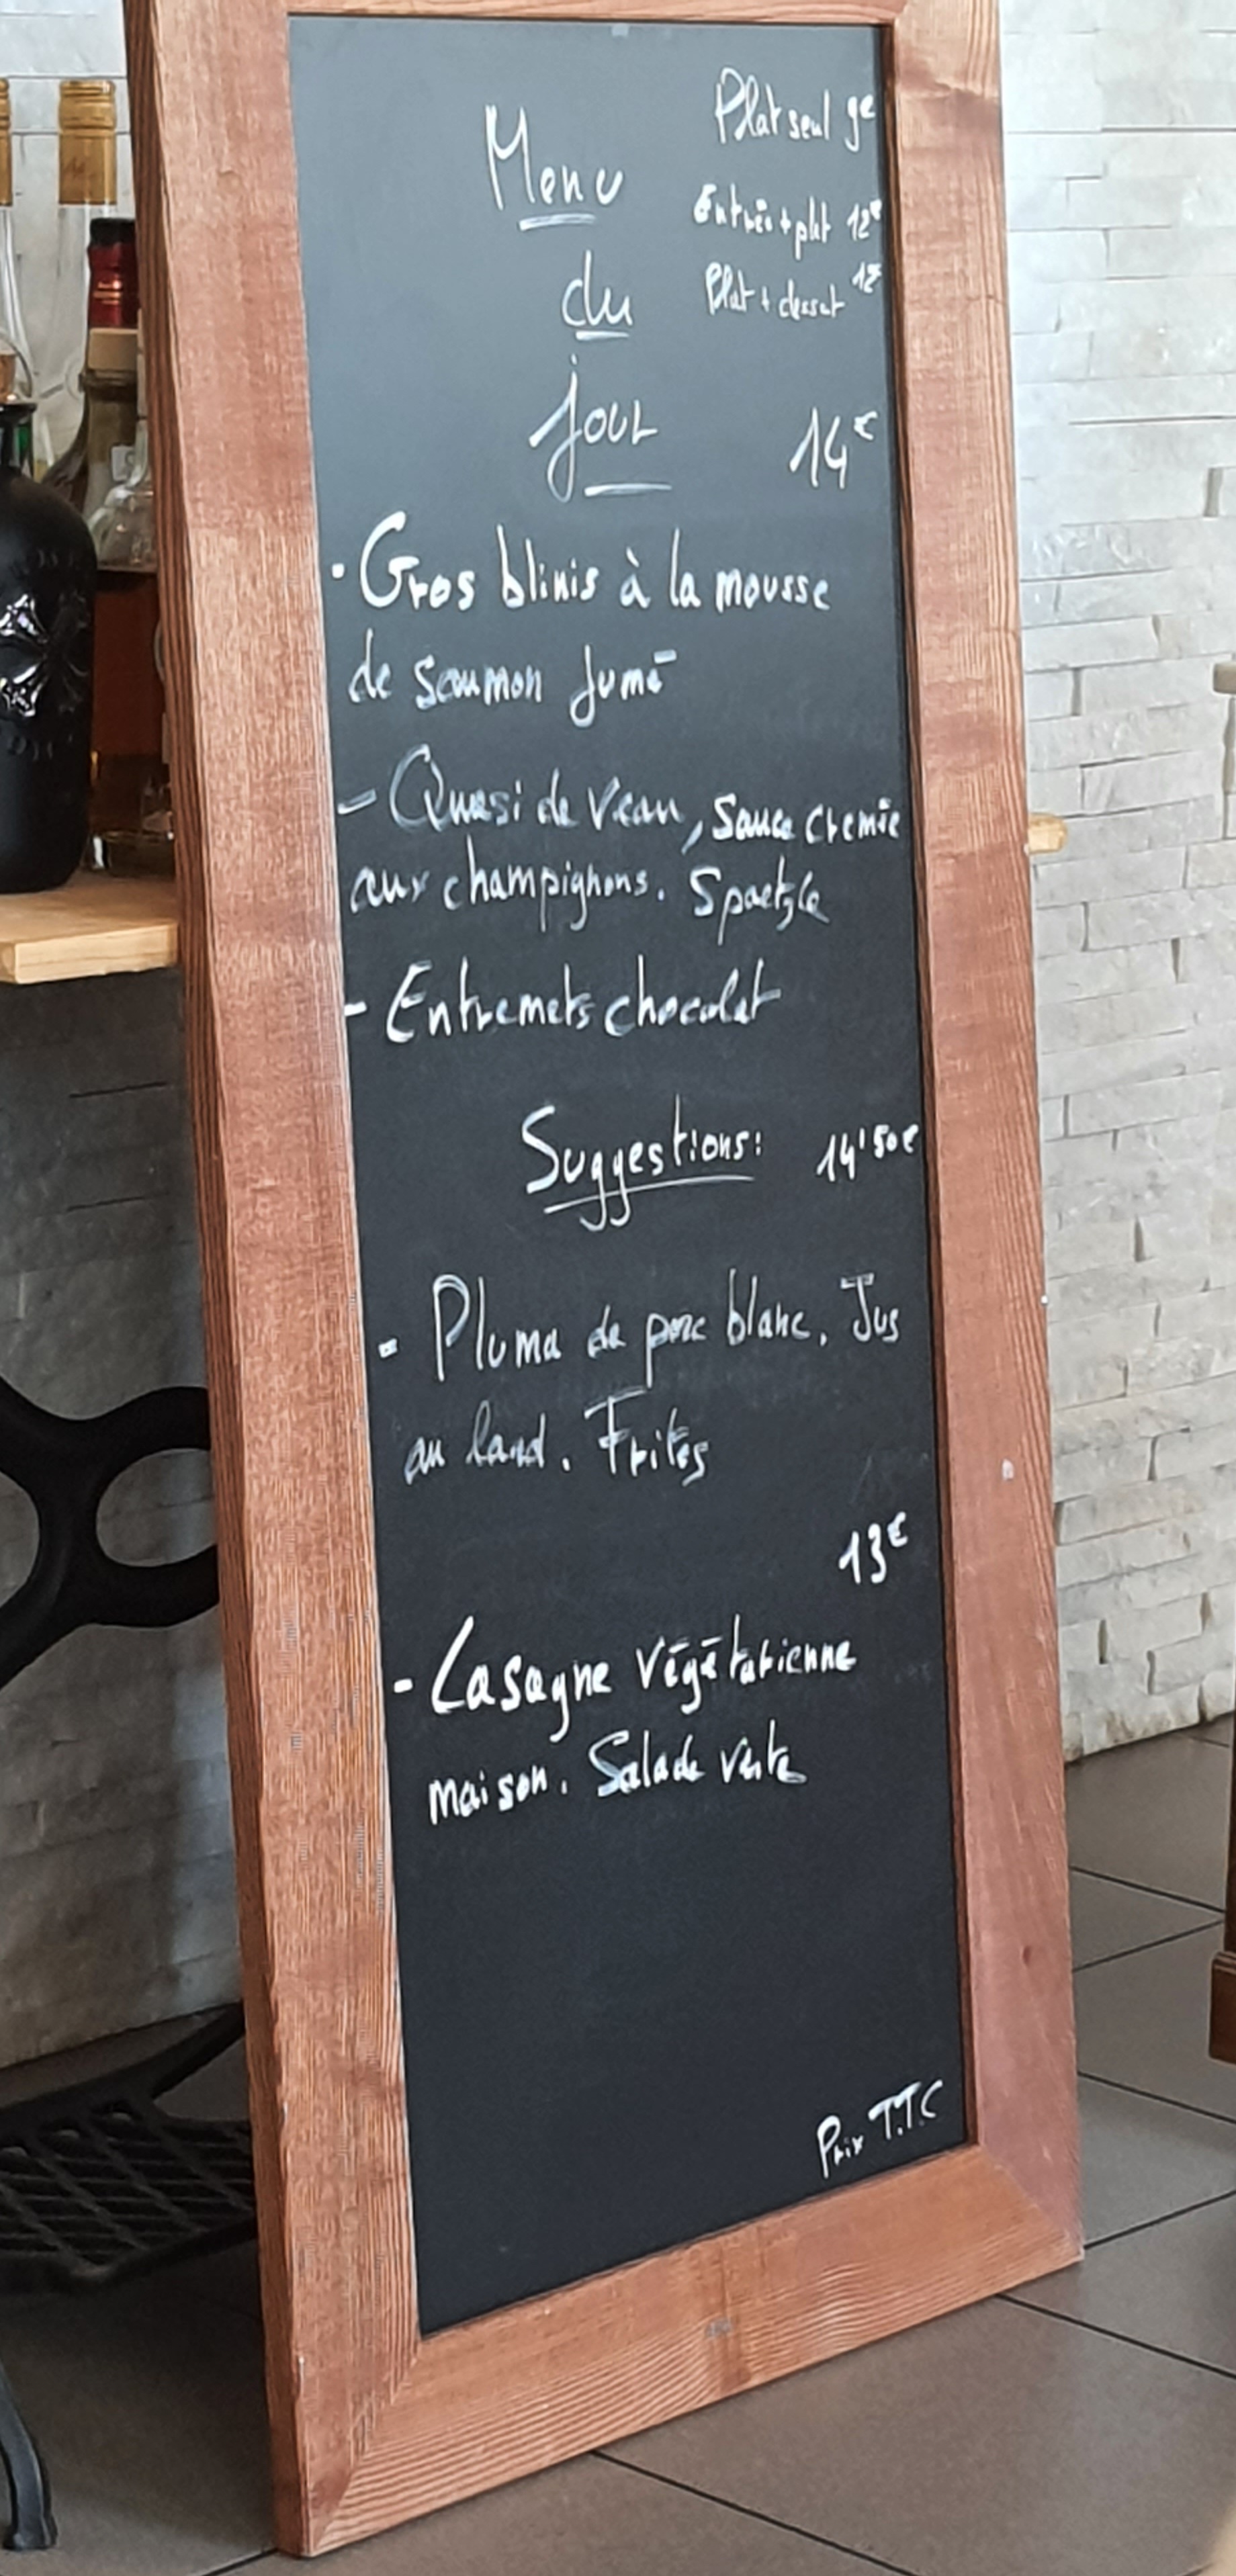 Plat seul 9€
Menu
Entrée + plat 12€
du
Plat + dessert 12€
jour
14€
· Gros blinis à la mousse
de saumon fumé
- Quasi de veau, sauce cremée
aux champignons. Spaetzle
- Entremets chocolat
Suggestions: 14'50€
- Pluma de porc blanc. Jus
au lard. Frites
13€
- Lasagne végétarienne
maison. Salade verte
Prix T.T.C